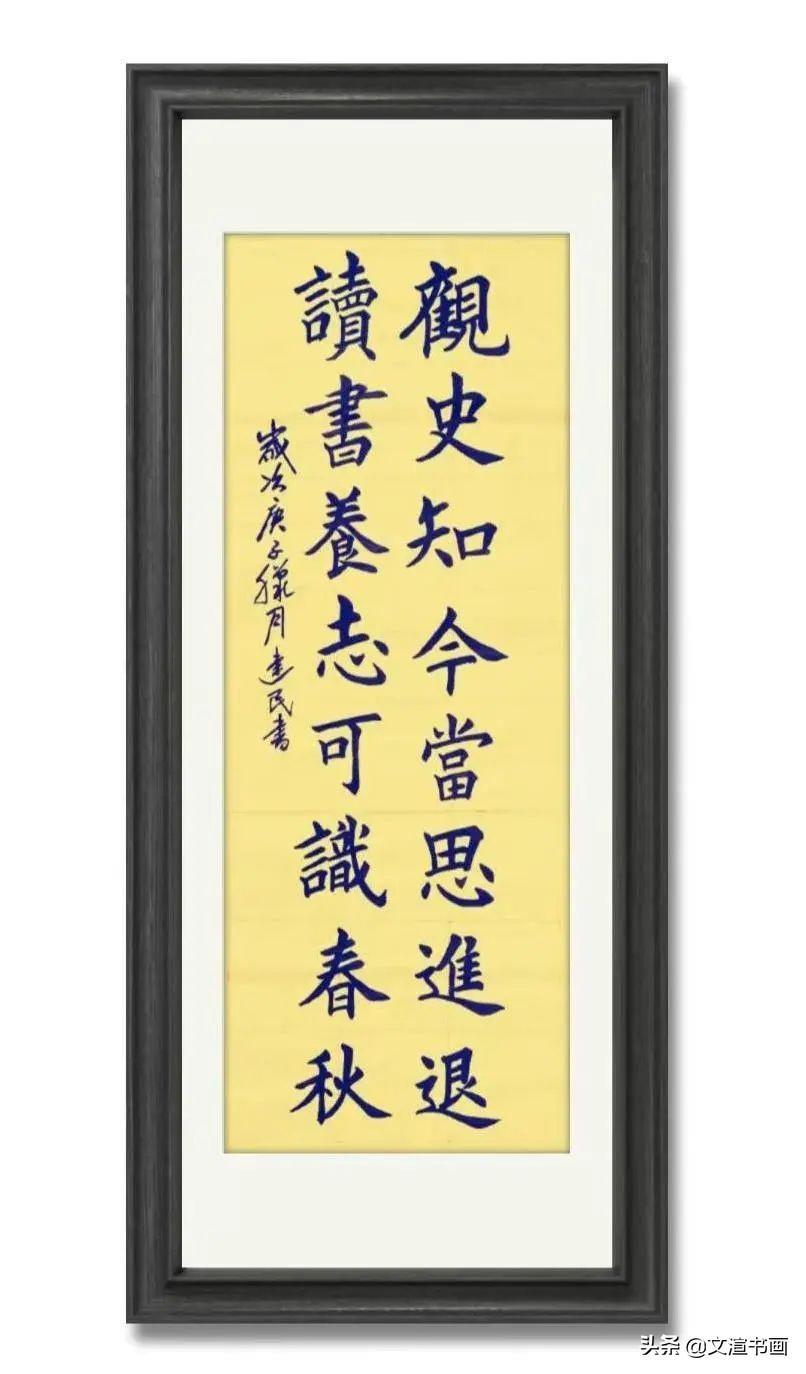 觀史知今當思進退
讀書養志可識春秋
歲次庚子臘月建民書
头条 @文渲书画